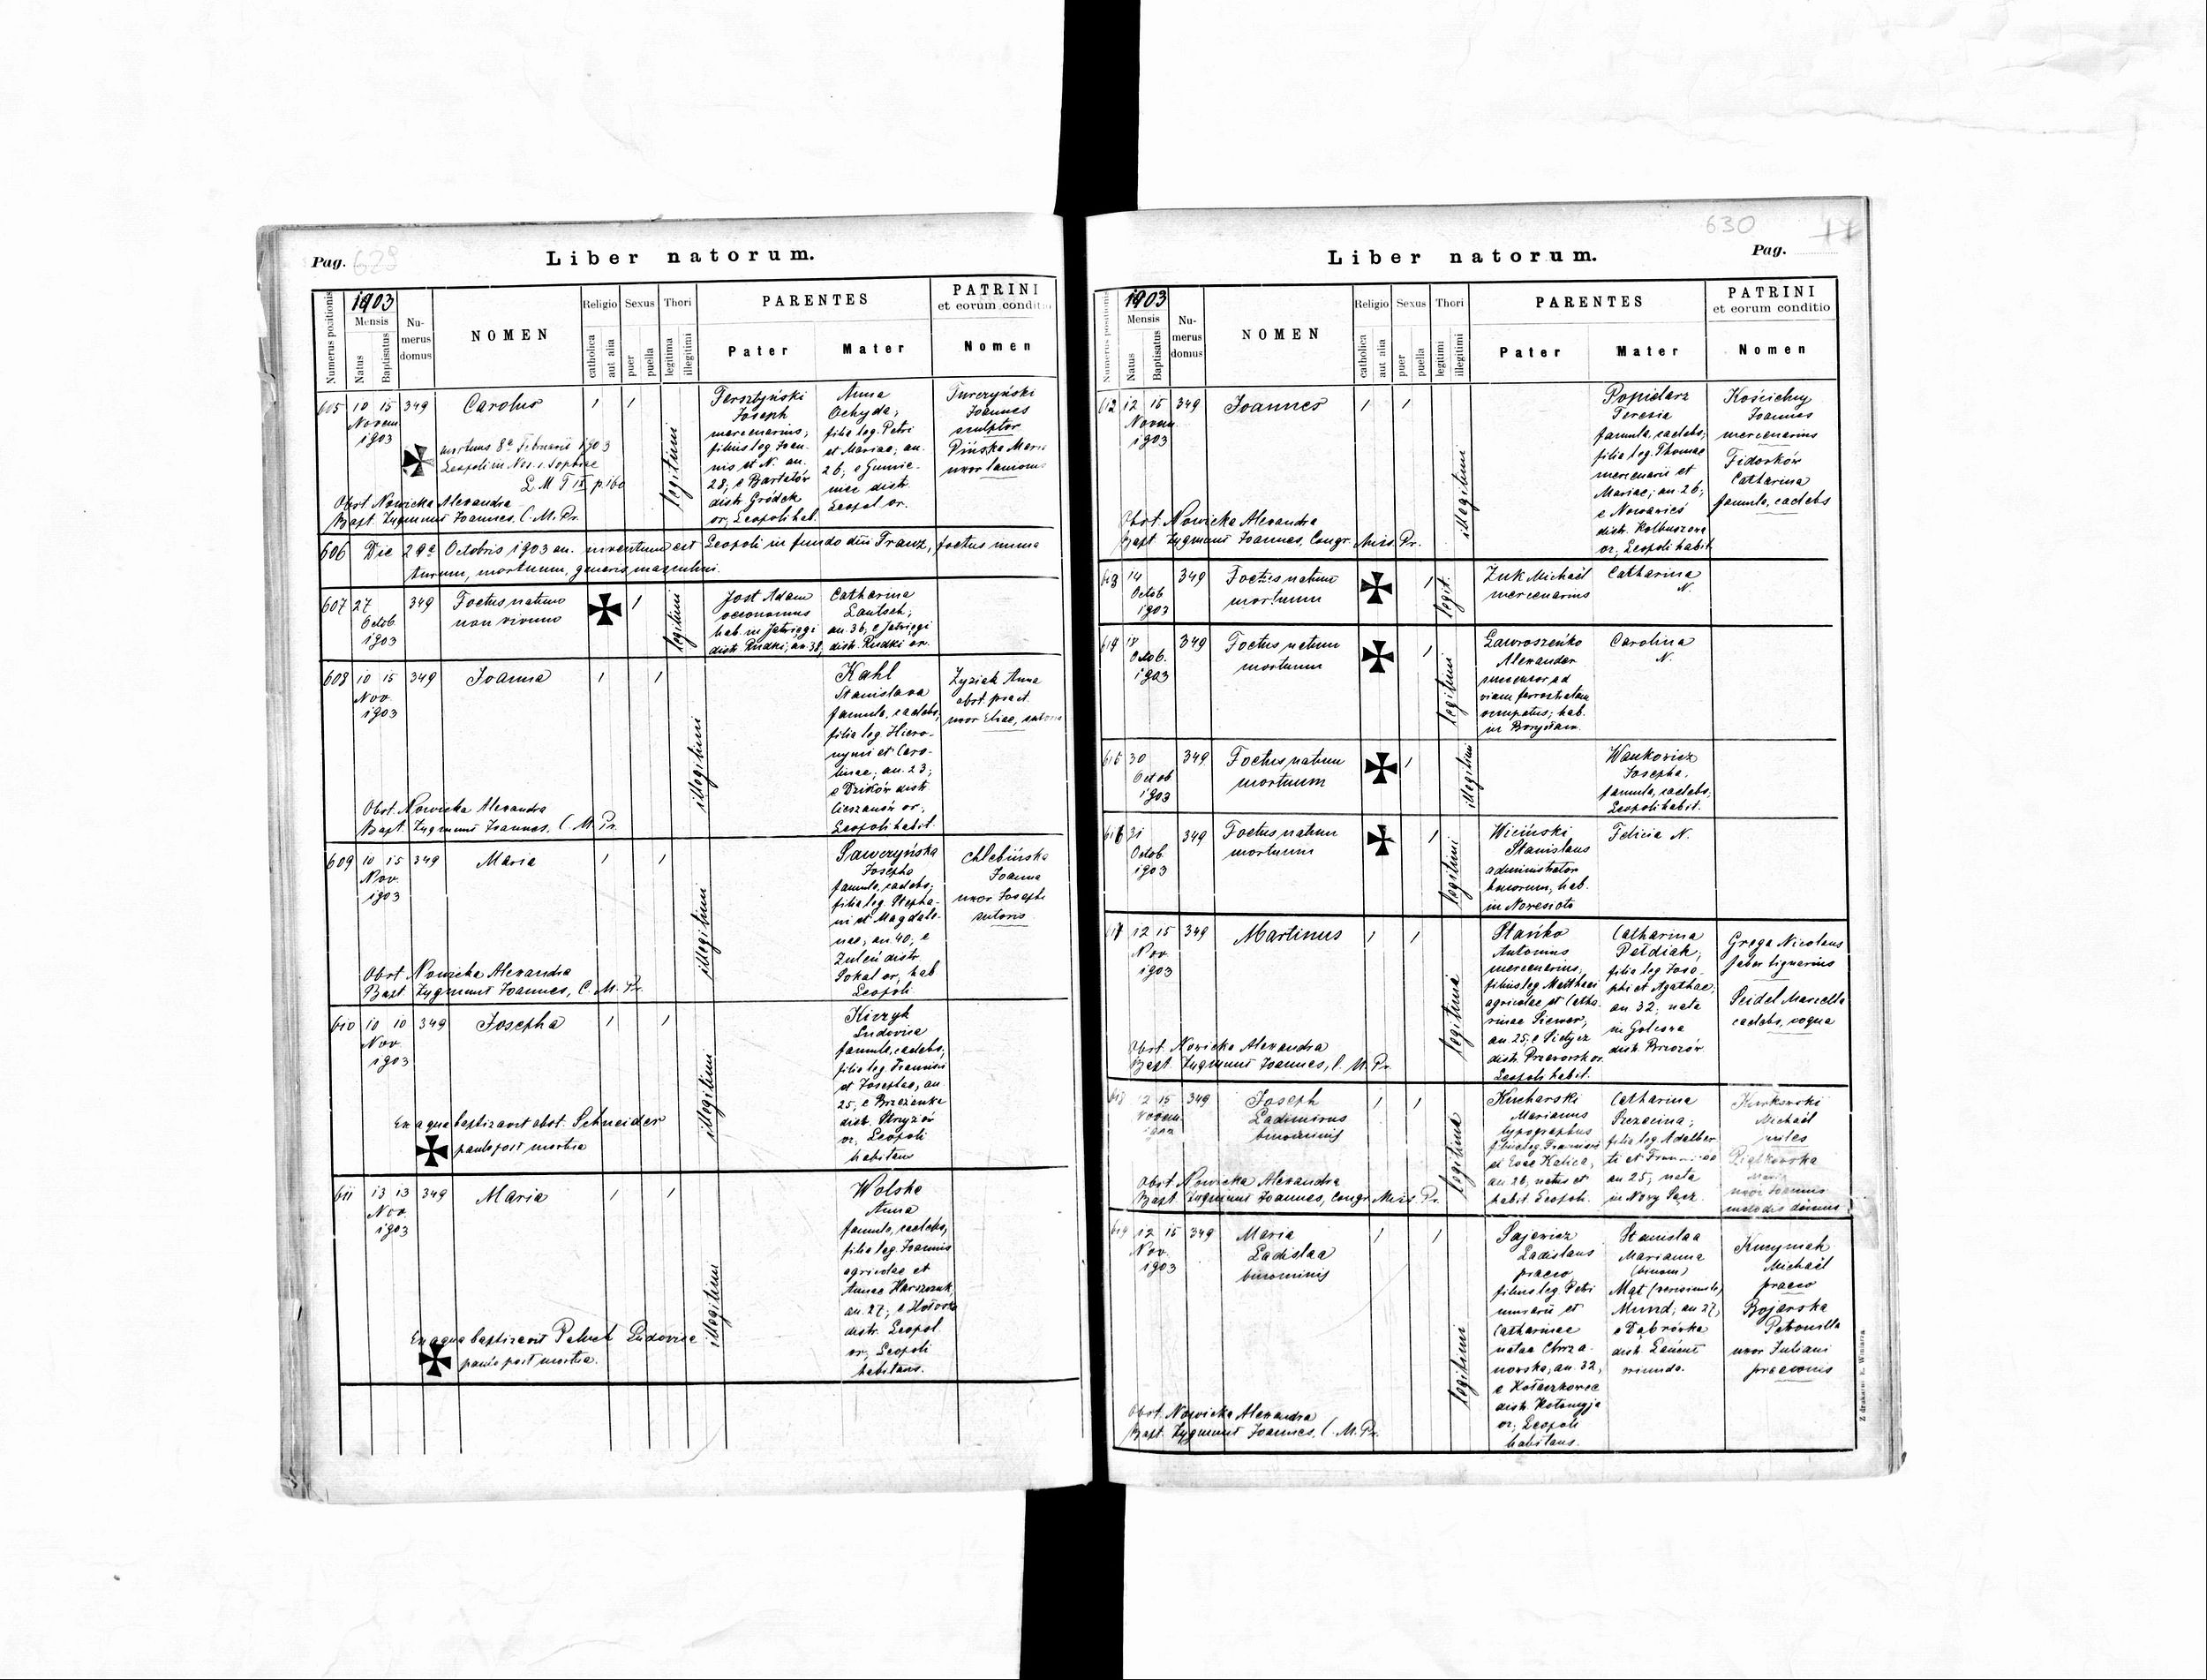 Pag. 629
Liber natorum.
Numerus positionis
1903
Mensis
Natus
Baptisatus
Numerus domus
NOMEN
Religio
catholica
aut alia
Sexus
puer
puella
Thori
legitima
illegitimi
PARENTES
Pater
Mater
PATRINI
et eorum conditio
Nomen
605 10 15 349 Carolus 1 1
Novem
1903
mortuus 8ª Februarii 1903
Leopoli in
L. M. T IX p 160
Obst Nowicka Alexandra
Bapt. Zygmunt Joannes, C. M. Pr.
legitimi
Tersztyński
Joseph
mercenarius;
filius leg. Joan-
nis et N. an.
28; e Bartatów
distr. Gródek
or; Leopoli hab.
Anna
Ochyda;
filia leg. Petri
et Mariae; an.
26; e
distr.
Leopol or.
Turczyński
Joannes
sculptor
Pińska Maria
uxor
606 Die 29ª Octobris 1903 an. inventum est Leopoli in fundo dni Franz, foetus imma
turum, mortuum, generis masculini.
607 27 349 Foetus natum 1
Octob. non vivum
1903
legitimi
Jost Adam
oeconomus
hab. in Jatwięgi
distr. Rudki; an. 38,
Catharina
Lautsch;
an. 36; e Jatwięgi
distr. Rudki or.
608 10 15 349 Joanna 1 1
Nov
1903
Obst. Nowicka Alexandra
Bapt. Zygmunt Joannes, C. M. Pr.
illegitimi
Kahl
Stanislava
famula, caelebs,
filia leg. Hiero-
nymi et Caro-
linae; an. 23;
e Dzików distr
Cieszanów or;
Leopoli habit.
Zyziak Anna
obst. pract.
uxor Eliae, sutoris
609 10 15 349 Maria 1 1
Nov.
1903
Obst Nowicka Alexandra
Bapt Zygmunt Joannes, C. M. Pr.
illegitimi
Sawczyńska
Josepha
famula, caelebs;
filia leg. Stepha-
ni et Magdale-
nae; an 40; e
distr.
Sokal or; hab
Leopoli
Chlebińska
Joanna
uxor Josephi
sutoris
610 10 10 349 Josepha 1 1
Nov.
1903
Ex aqua baptizavit obst. Schneider
paulo post mortua
illegitimi
Kiczyk
Ludovica
famula, caelebs;
filia leg. Francisci
et Josephae, an
25; e Brzezanka
distr. Strzyżów
or; Leopoli
habitans
611 13 13 349 Maria 1 1
Nov
1903
Ex aqua baptizavit Ludovica
paulo post mortua.
illegitimi
Wolska
Anna
famula, caelebs,
filia leg. Joannis
agricolae et
Annae
an. 27; e
distr. Leopol
or; Leopoli
habitans.
630
Pag.
Liber natorum.
Numerus positionis
1903
Mensis
Natus
Baptisatus
Numerus domus
NOMEN
Religio
catholica
aut alia
Sexus
puer
puella
Thori
legitimi
illegitimi
PARENTES
Pater
Mater
PATRINI
et eorum conditio
Nomen
612 12 15 349 Joannes 1 1
Novem
1903
Obst. Nowicka Alexandra
Bapt Zygmunt Joannes, Congr. Miss. Pr.
illegitimi
Popielarz
Teresia
famula, caelebs;
filia leg. Thomae
mercenarii et
Mariae; an. 26;
e Nowawieś
distr. Kolbuszowa
or; Leopoli habit.
Kościelny
Joannes
mercenarius
Fidorków
Catharina
famula, caelebs
613 14 349 Foetus natum 1
Octob mortuum
1903
legit.
Żuk Michael
mercenarius
Catharina
N.
614 18 349 Foetus natum 1
Octob. mortuum
1903
legitimi
Ławroszeńko
Alexander
viam ferrostratam
occupatus; hab.
in Borysław
Carolina
N.
615 30 349 Foetus natum 1
Octob mortuum
1903
illegitimi
Wankowicz
Josepha,
famula, caelebs;
Leopoli habit.
616 31 349 Foetus natum 1
Octob. mortuum
1903
legitimi
Wiciński
Stanislaus
administrator
bonorum, hab.
in Nowesioło
Felicia N.
617 12 15 349 Martinus 1 1
Nov
1903
Obst. Nowicka Alexandra
Bapt. Zygmunt Joannes, C. M. Pr.
legitima
Stańko
Antonius
mercenarius,
filius leg Matthaei
agricolae et Catha-
rinae Siewar;
an. 25; e Sietysz
distr. Przeworsk or.
Leopoli habit.
Catharina
Pałdiak;
filia leg Jose-
phi et Agathae;
an 32; nata
in Golcowa
distr. Brzozów
Grega Nicolaus
faber lignarius
Seidel Marcella
caelebs, coqua
618 12 15 349 Joseph 1 1
Novem. Ladimirus
1903 binominis
Obst. Nowicka Alexandra
Bapt. Zygmunt Joannes, Congr. Miss. Pr.
legitima
Kucharski
Marianus
typographus
filius leg Francisci
et Evae Kalica;
an. 26, natus et
habit. Leopoli.
Catharina
Szczecina;
filia leg Adalber-
ti et
an 25; nata
in Nowy Sącz.
Michael
miles
Piątkowska
Maria
uxor Joannis
custodis domus
619 12 15 349 Maria 1 1
Nov. Ladislaa
1903 binominis
Obst. Nowicka Alexandra
Bapt. Zygmunt Joannes, C. M. Pr.
legitimi
Sajewicz
Ladislaus
praeco
filius leg Petri
murarii et
Catharinae
natae Chrza-
nowska; an. 32,
e Kołaczkowce
distr. Kołomyja
or; Leopoli
habitans.
Stanislaa
Marianna
(binom)
Mat (verisimile)
Mund; an 27;
e Dąbrówka
distr. Łańcut
oriunda.
Kuczyniak
Michael
praeco
Bojarska
Petronilla
uxor Juliani
praeconis
Z drukarni E. Winiarza